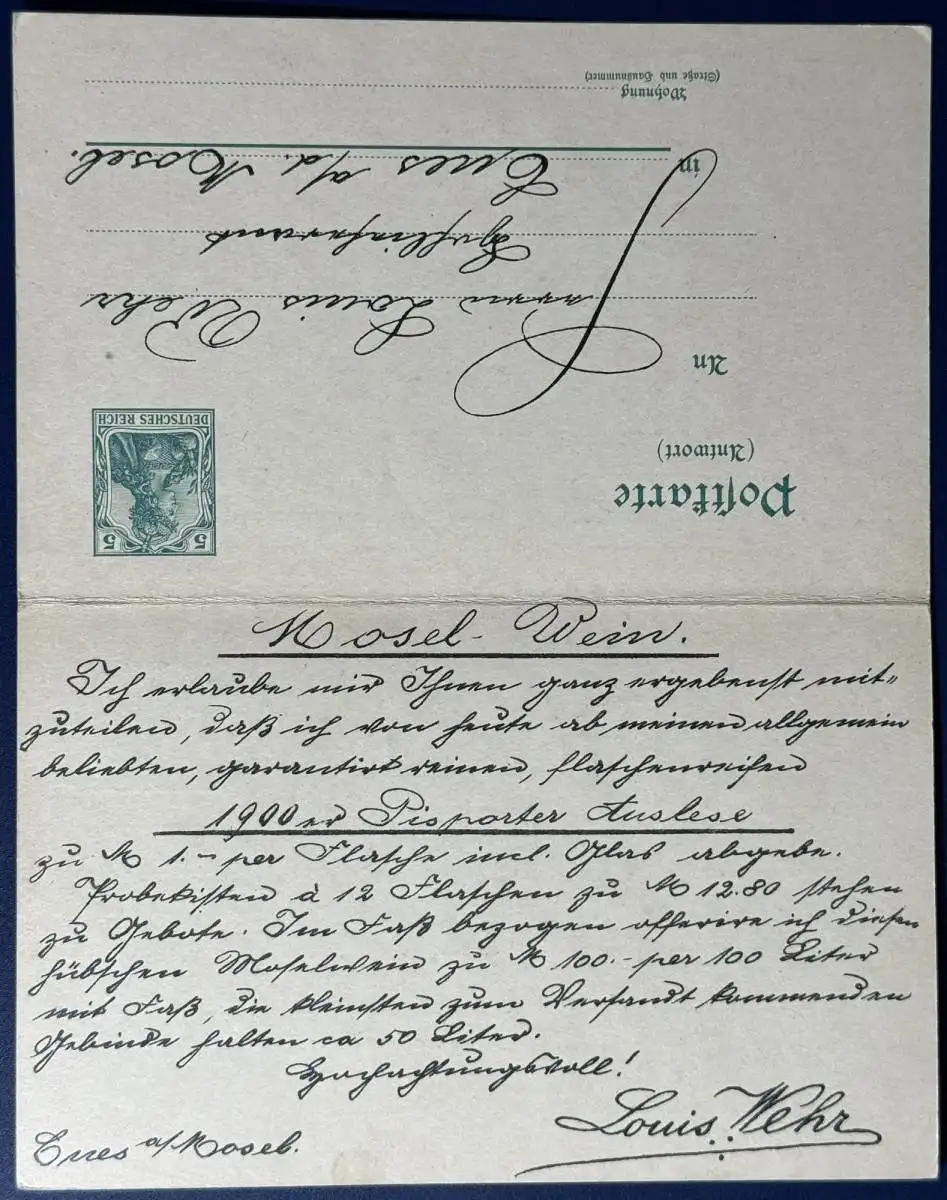 Postkarte
(Antwort)
DEUTSCHES REICH
5 5
An
Herrn Louis Wehr
Hoflieferant
in Cues a/d. Mosel.
Wohnung
(Straße und Hausnummer)
Mosel-Wein.
Ich erlaube mir Ihnen ganz ergebenst mit-
zuteilen, daß ich von heute ab meinen allgemein
beliebten, garantirt reinen, flaschenreifen
1900er Pisporter Auslese
zu M 1.- per Flasche incl. Glas abgebe.
Probekisten à 12 Flaschen zu M 12.80 stehen
zu Gebote. Im Faß bezogen offerire ich diesen
hübschen Moselwein zu M 100.- per 100 Liter
mit Faß, die kleinsten zum Versandt kommenden
Gebinde halten ca 50 Liter.
Hochachtungsvoll!
Louis Wehr
Cues a/Mosel.